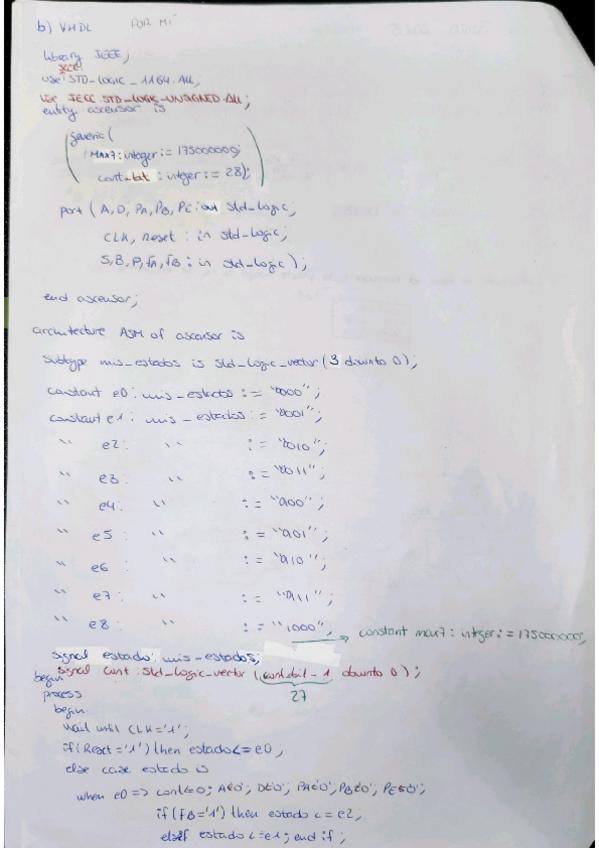 b) VHDL POR MI
library IEEE;
use IEEE.STD_LOGIC_1164.ALL;
use IEEE.STD_LOGIC_UNSIGNED.ALL;
entity ascensor is
generic(
MAX7: integer := 175000000;
cont_bit : integer := 28);
port ( A, D, PA, PB, PE: out std_logic;
CLK, Reset : in std_logic;
S, B, P, FA, FB : in std_logic );
end ascensor;
architecture ASM of ascensor is
subtype mis_estados is std_logic_vector (3 downto 0);
constant e0: mis_estados := "0000";
constant e1: mis_estados := "0001";
" e2: " := "0010";
" e3: " := "0011";
" e4: " := "0100";
" e5: " := "0101";
" e6: " := "0110";
" e7: " := "0111";
" e8: " := "1000";
constant max7: integer := 175000000;
signal estado: mis_estados;
signal cont: std_logic_vector (cont_bit - 1 downto 0);
27
begin
process
begin
wait until CLK='1';
if (Reset='1') then estado<=e0;
else case estado is
when e0 => cont<=0; A<='0'; D<='0'; PA<='0'; PB<='0'; PE<='0';
if (FB='1') then estado <= e2;
else estado <= e1; end if;